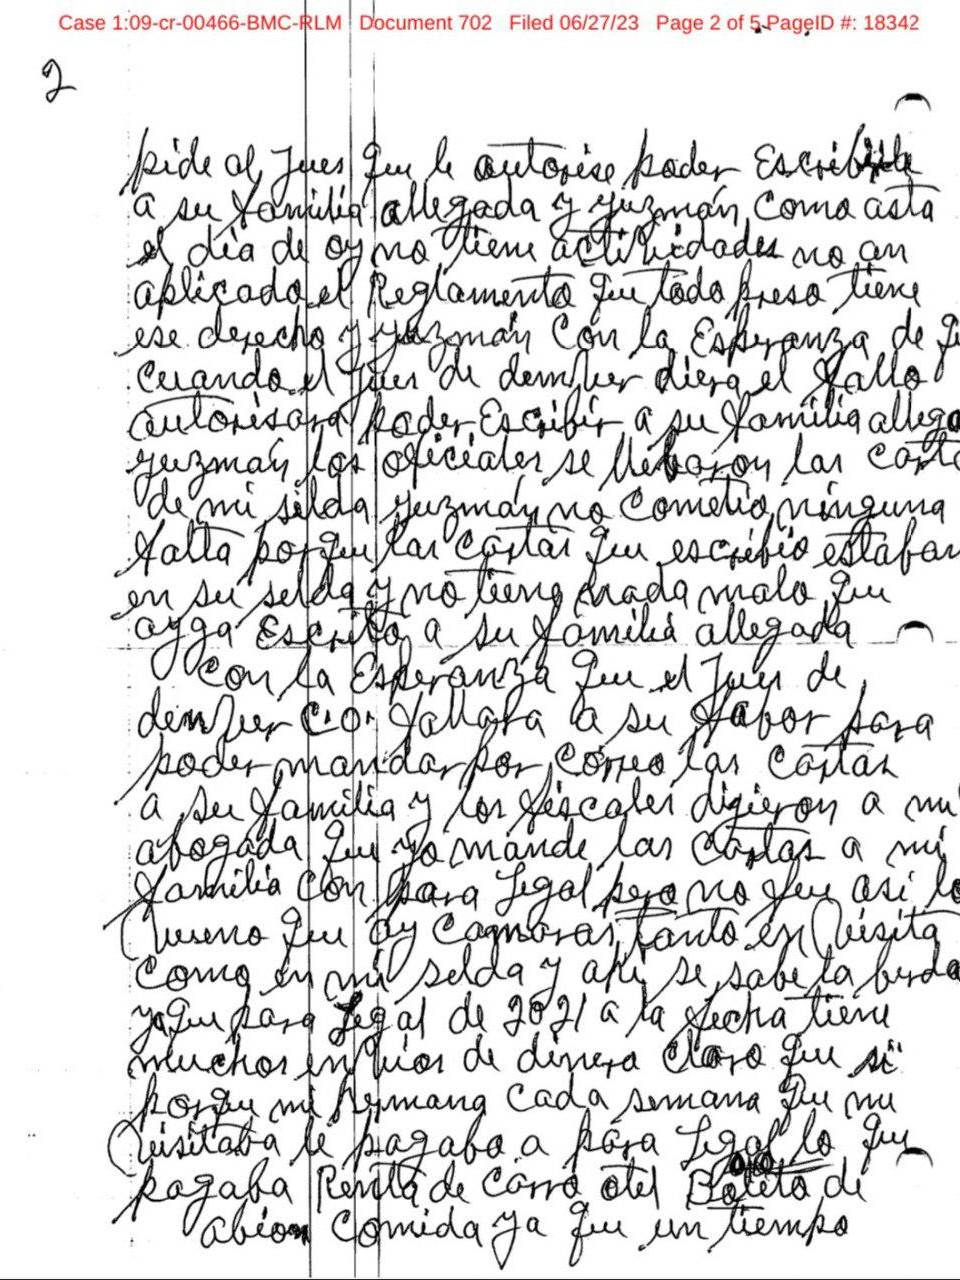 Case 1:09-cr-00466-BMC-RLM Document 702 Filed 06/27/23 Page 2 of 5 PageID #: 18342
2
pide al Jues que le autorise poder Escribirle
a su familia allegada y yuzmán como asta
el día de oy no tiene actibidades no an
aplicado el Reglamento que todo preso tiene
ese derecho y yuzmán con la Esperanza de qu
cuando el Jues de dember diera el fallo
autorisara poder Escribir a su familia allega
yuzmán los oficiales se llebaron las carta
de mi selda yuzmán no cometio ninguna
falta porque las cartas que escribio estaban
en su selda y no tiene nada malo que
ayga Escrito a su familia allegada
con la Esperanza que el Jues de
dember C.O. fallara a su fabor para
poder mandar por correo las cartas
a su familia y los fiscales dijeron a mi
abogada que yo mande las cartas a mi
familia con para Legal pero no fue asi lo
bueno que ay camaras tanto en Visita
como en mi selda y ahi se sabe la berda
ya que para Legal de 2021 a la fecha tiene
muchos enbios de dinero claro que si
porque mi hermana cada semana que me
Visitaba le pagaba a para Legal lo que
pagaba Renta de carro otel Boleto de
abion comida ya que un tiempo